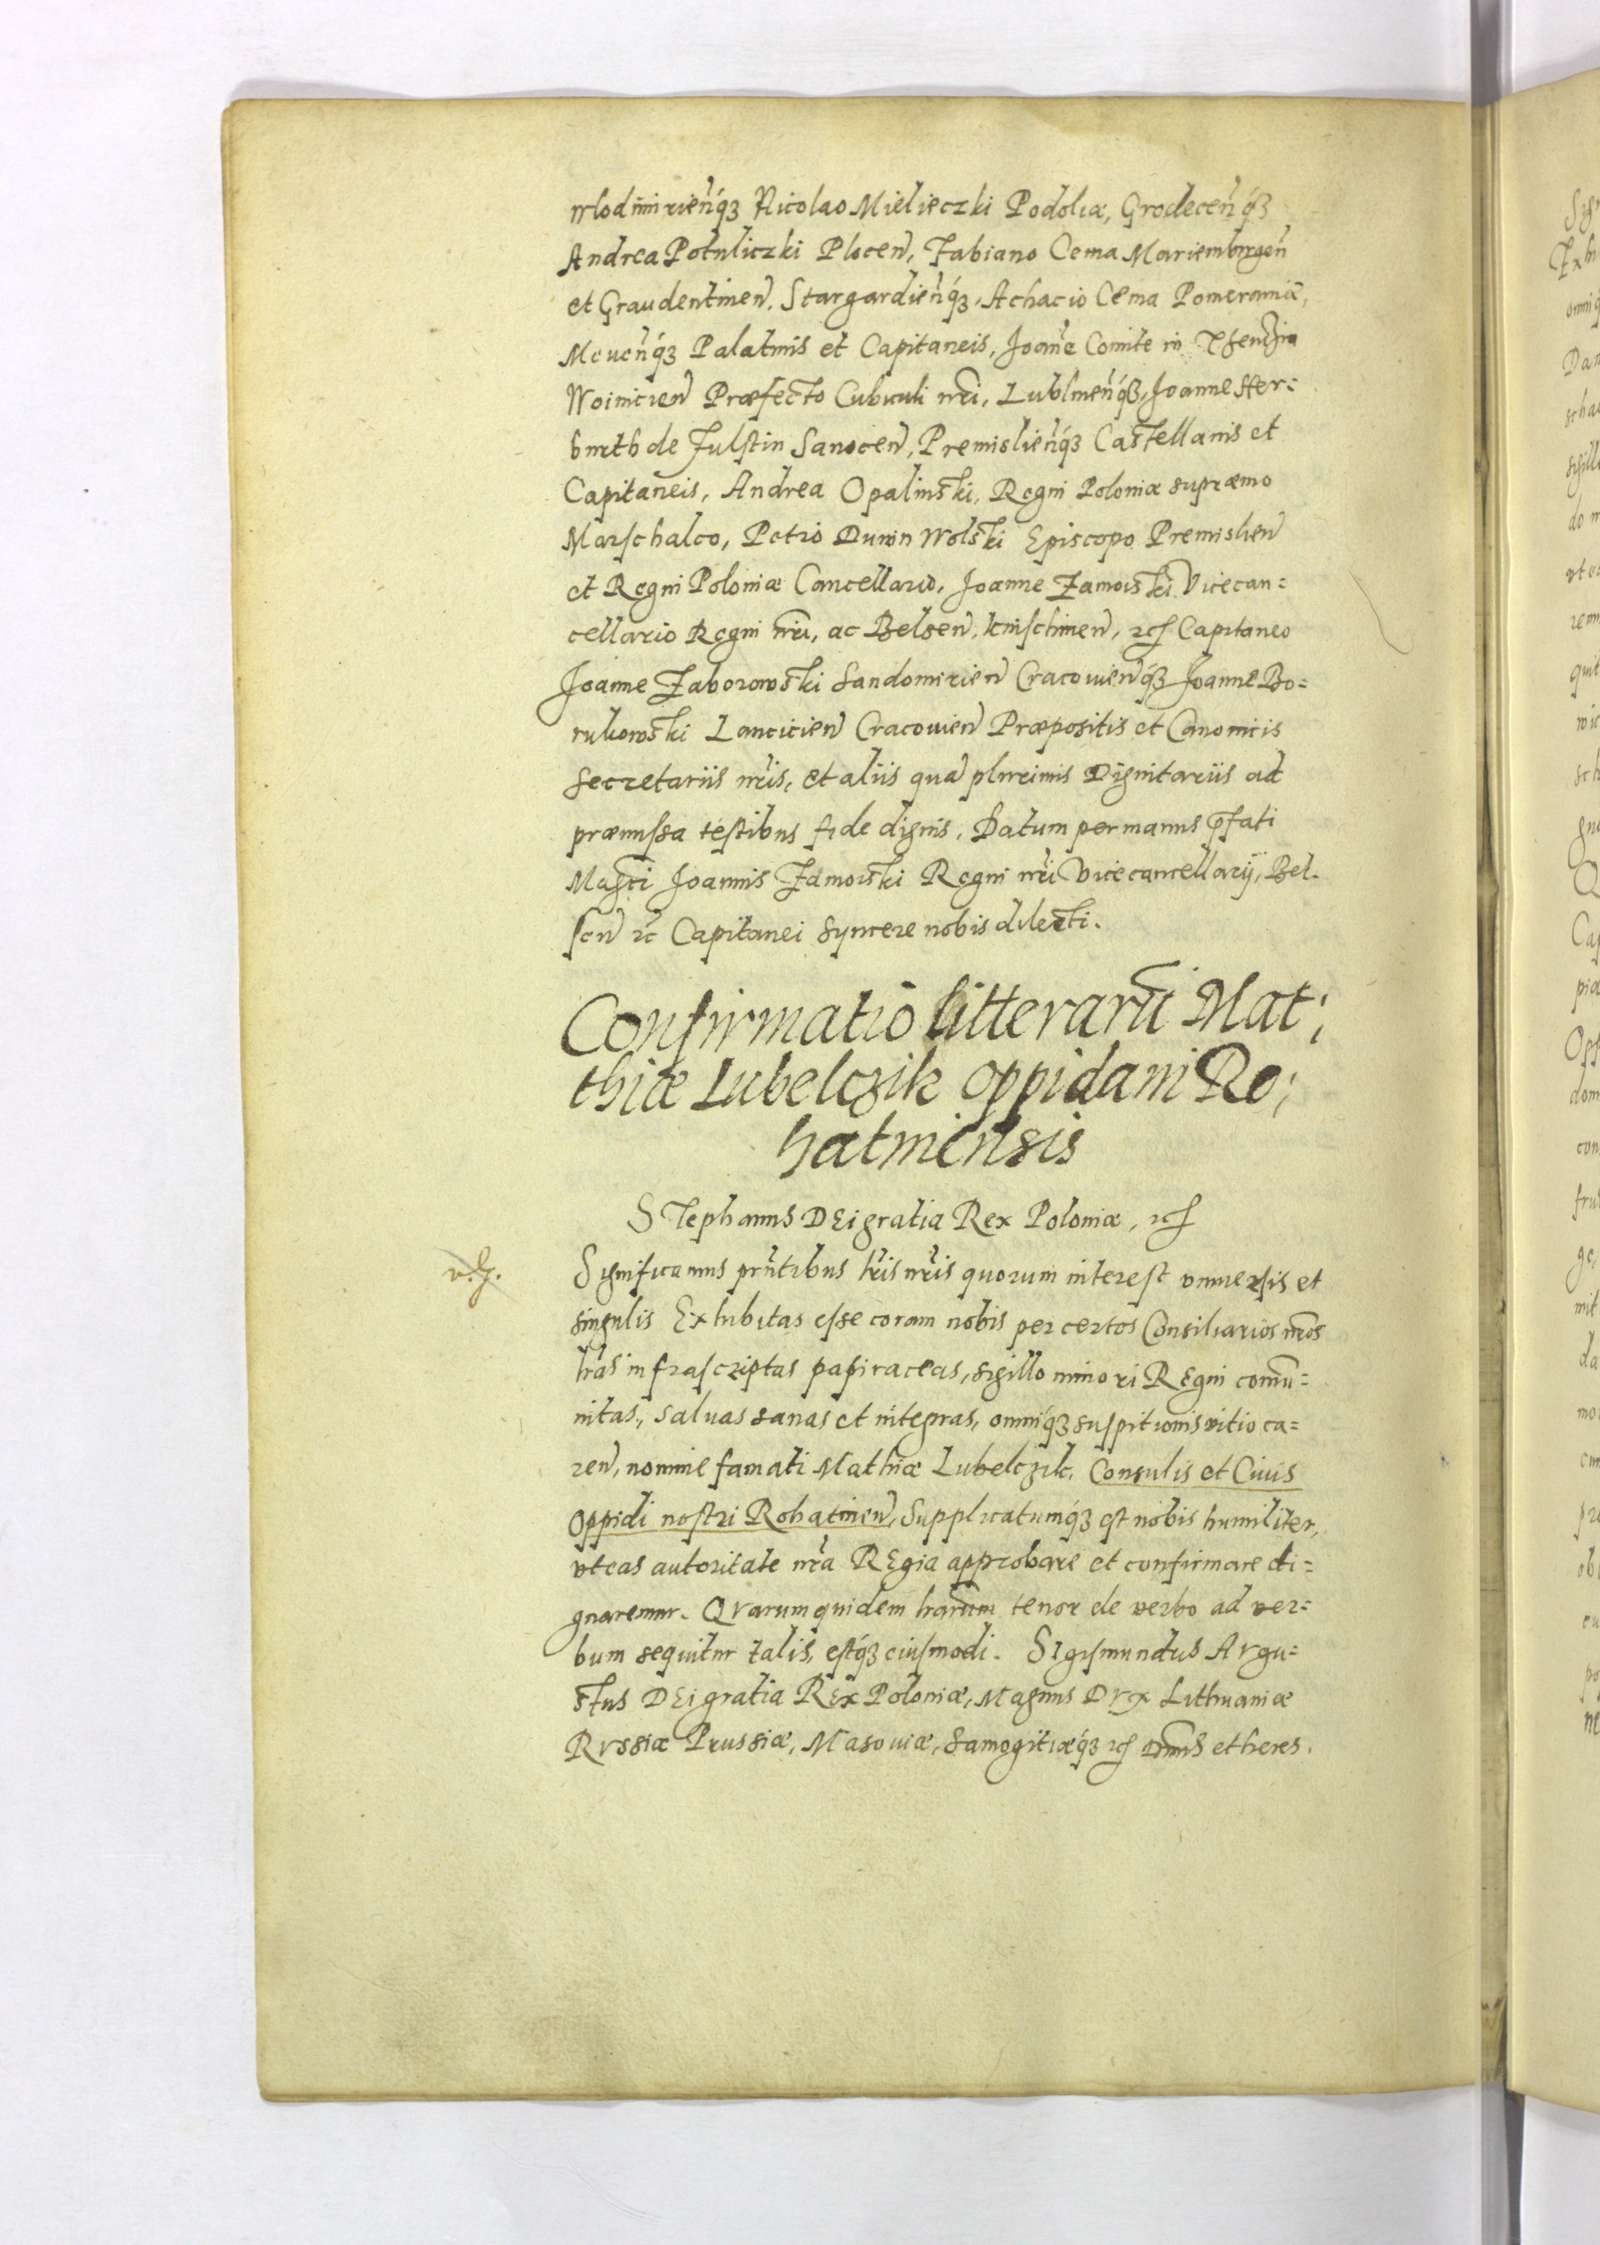 wlodimirien̄q́ꝫ Nicolao Mielieczki Podoliæ, Grodecen̄q́ꝫ
Andrea Potuliczki Plocen̄, Fabiano Cema Mariemburgen̄
et Graudentinen̄. Stargardien̄q́ꝫ, Achacio Cema Pomeraniæ,
Meuen̄q́ꝫ Palatinis et Capitaneis, Joan̄e Comite in Thenczin
Woinicien̄ Præfecto Cubiculi nr̄i, Lublinen̄q́ꝫ, Joanne Her-
burth de Fulstin Sanocen̄, Premislien̄q́ꝫ Castellanis et
Capitaneis, Andrea Opalinski, Regni Poloniæ supræmo
Marschalco, Petro Dunin Wolski Episcopo Premislien̄
et Regni Poloniæ Cancellario, Joanne Zamoiski Vicecan-
cellario Regni nr̄i, ac Belsen̄, knischinen̄, ꝛc̄ Capitaneo
Joanne Zaborowski Sandomirien̄ Cracouien̄q́ꝫ Joanne Bo-
rukowski Lancicien̄ Cracouien̄ Præpositis et Canonicis
Secretariis nr̄is, et aliis qua̅ plurimis Dignitariis ad
præmissa testibus fide dignis. Datum per manus p̄fati
Magc̄i Joannis Zamoiski Regni nr̄i Vicecancellarij, Bel-
sen̄ ꝛc̄ Capitanei Syncere nobis dilecti.
Confirmatio litterarū Mat-
thiæ Lubelczik oppidani Ro-
hatinensis
Stephanus DEi gratia Rex Poloniæ, ꝛc̄
v. g.
Significamus prn̄tibus lr̄is nr̄is quorum interest vniuersis et
singulis Exhibitas esse coram nobis per certos Consiliarios nr̄os
lr̄as infrascriptas papiraceas, sigillo minori REgni com̄u-
nitas, saluas sanas et integras, omniq́ꝫ suspitionis vitio ca-
ren̄, nomine famati Mathiæ Lubelczik, Consulis et Ciuis
Oppidi nostri Rohatinen̄, Supplicatumq́ꝫ est nobis humiliter,
vt eas autoritate nr̄a REgia approbare et confirmare di-
gnaremur. QVarum quidem lr̄arum tenor de verbo ad ver-
bum sequitur talis, estq́ꝫ eiusmodi. SIgismundus AVgu-
stus DEi gratia REx Poloniæ, Magnus DVx Lithuaniæ
RVssiæ Prussiæ, Masouiæ, Samogitiæq́ꝫ ꝛc̄ Dn̄us et heres.